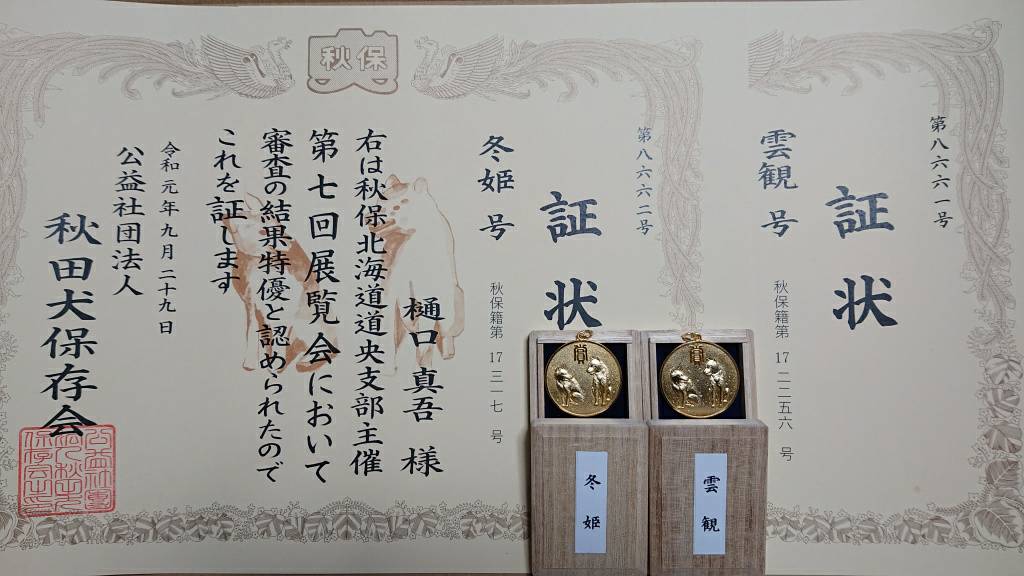 第八六六一号
証状
雲観 号
秋保籍第 17 二二五六 号
秋保
第八六六二号
証状
冬姫 号
秋保籍第 17 三一七 号
樋口 真吾 様
右は秋保北海道道央支部主催
第七回展覧会において
審査の結果特優と認められたので
これを証します
令和元年九月二十九日
公益社団法人
秋田犬保存会
賞
賞
冬姫
雲観